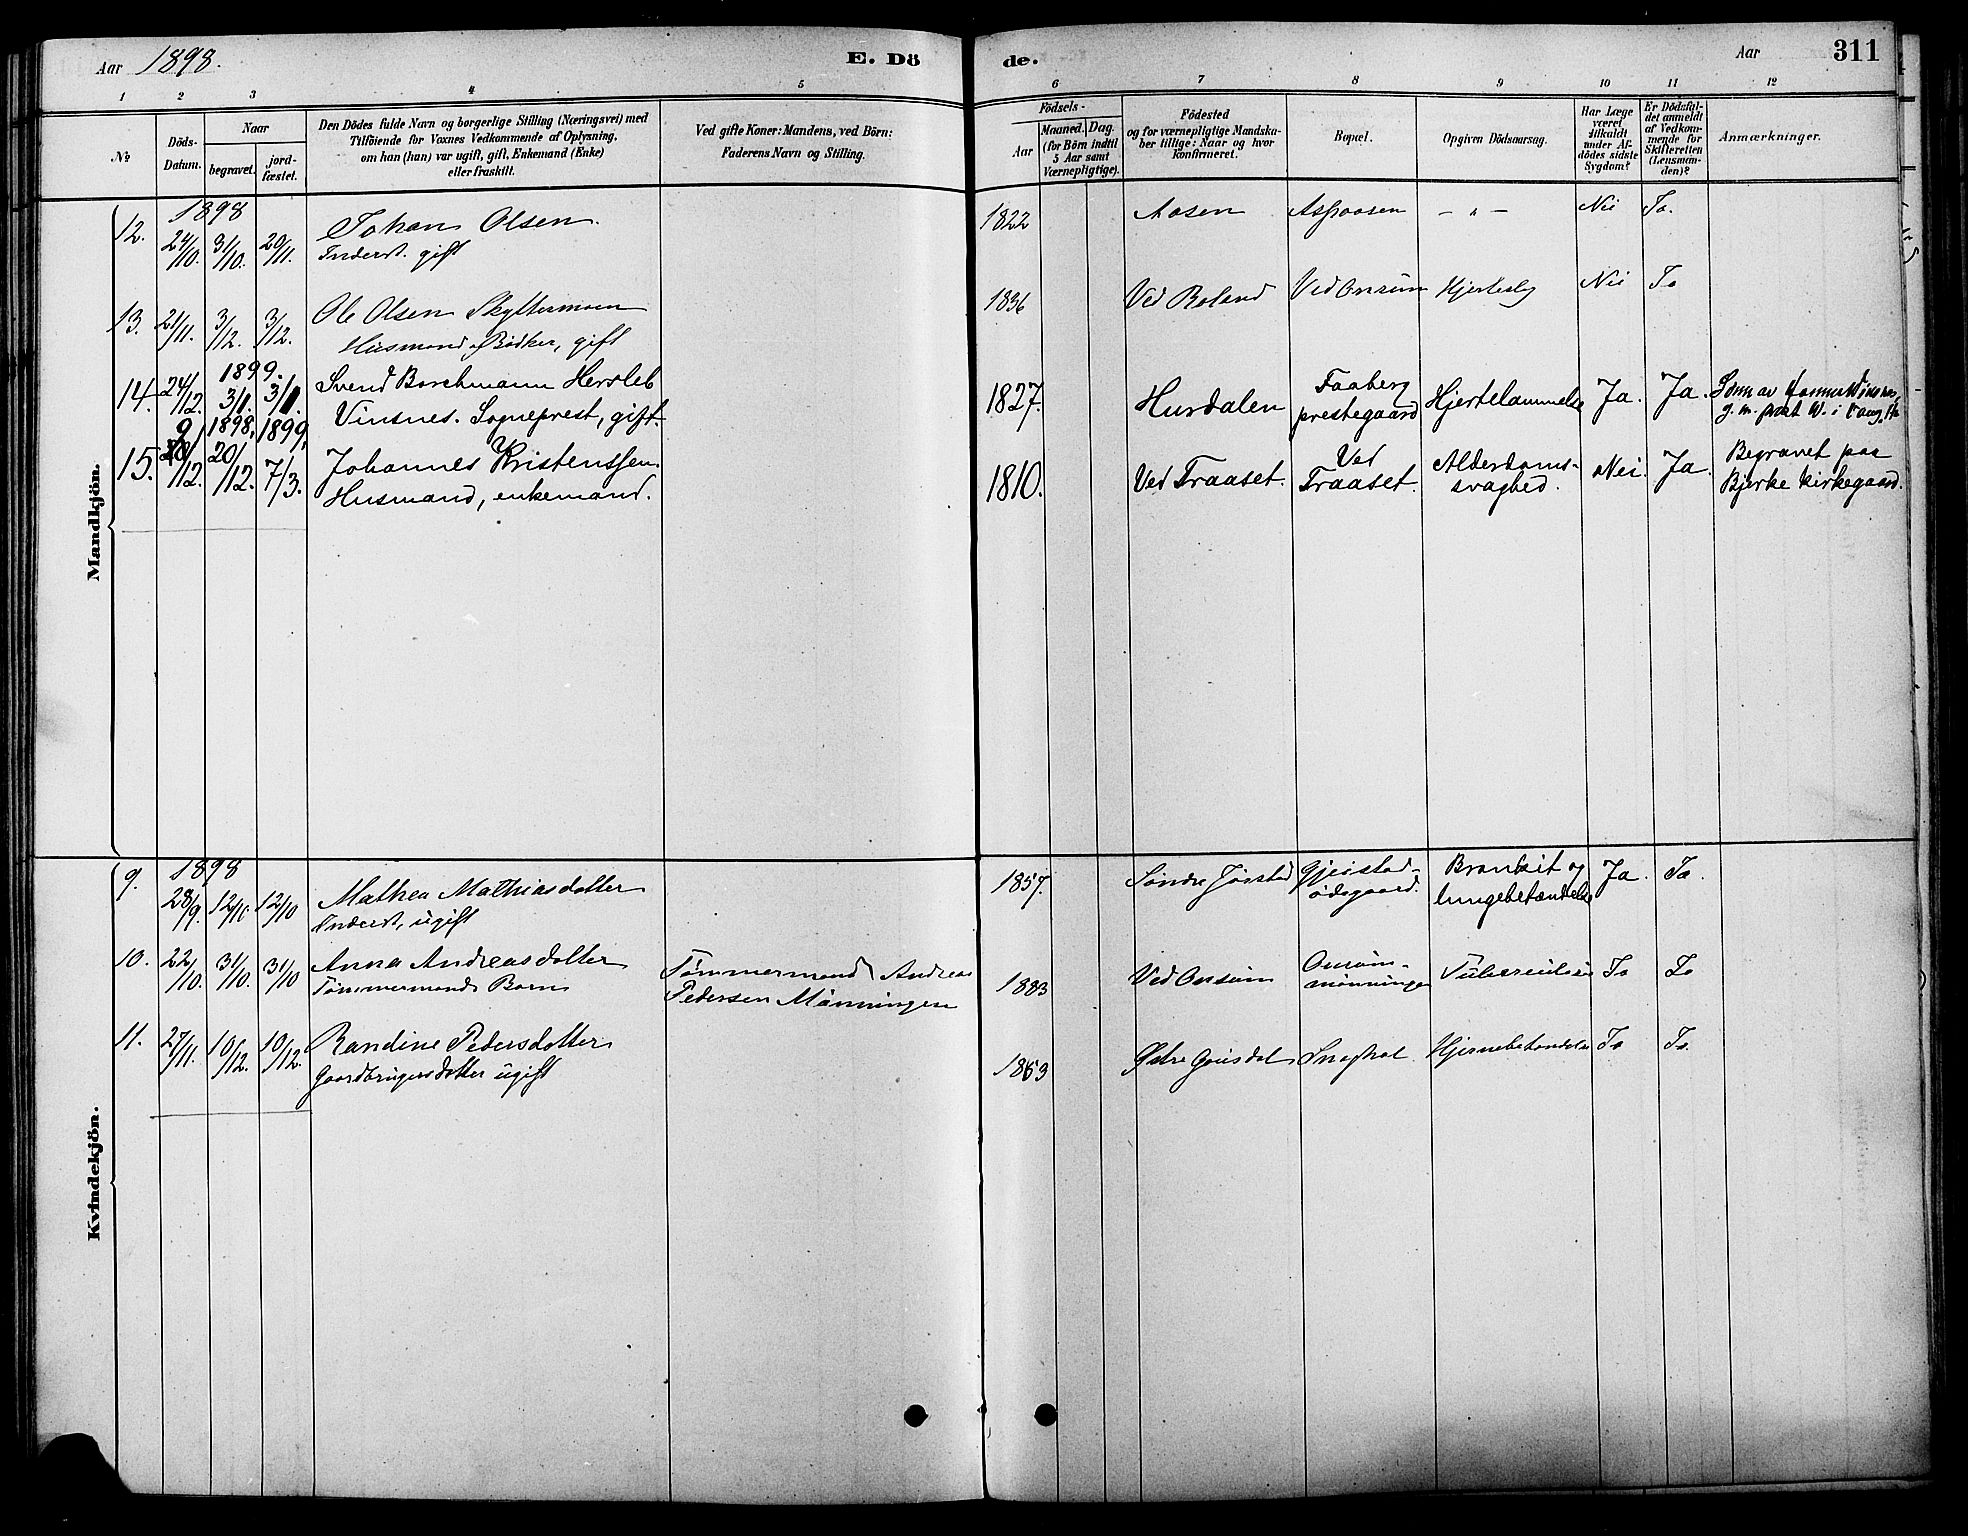 Aar 1898.
E. Dö
de.
Aar
311
1 2 3 4 5 6 7 8 9 10 11 12
No
Döds-
Datum.
Naar
begravet.
jord-
fæstet.
Den Dödes fulde Navn og borgerlige Stilling (Næringsvei) med
Tilföiende for Voxnes Vedkommende af Oplysning,
om han (hun) var ugift, gift, Enkemand (Enke)
eller fraskilt.
Ved gifte Koner: Mandens, ved Börn:
Faderens Navn og Stilling.
Födsels-
Aar
Maaned. Dag.
(for Börn indtil
5 Aar samt
Værnepligtige).
Födested
og for værnepligtige Mandska-
ber tillige: Naar og hvor
Konfirmeret.
Bopæl.
Opgiven Dödsaarsag.
Har Læge
været
tilkaldt
under Af-
dödes sidste
Sygdom?
Er Dödsfal-
det anmeldt
af Vedkom-
mende for
Skifteretten
(Lensman-
den)?
Anmærkninger.
Mandkjön.
1898
12. 24/10. 31/10. 20/11. Johan Olsen. 1822 Aasen Aspaasen – " – Nei Ja.
Inderst. gift
13. 21/11. 3/12. 3/12. Ole Olsen Skyttermoen 1836 Ved Roland Ved Onsum Hjerteslag Nei Ja
Husmand og Bødker, gift
1899.
14. 24/12. 3/1. 3/1. Svend Borchmann Hersleb 1827. Hurdalen Faaberg Hjertelammelse Ja. Ja. Sønn av
Vinsnes. Sogneprest, gift. prestegaard
1898, 1899,
15. 9/12. 20/12. 7/3. Johannes Kristenssen. 1810. Ved Traaset. Ved Alderdoms- Nei. Ja. Begravet paa
Husmand, enkemand. Traaset. svaghed. Bjerke kirkegaard.
Kvindekjön.
1898
9. 28/9. 12/10 12/10 Mathea Mathiasdatter 1857. Søndre Jørstad Gjeistad- Bronkit og Ja. Ja.
Inderst, ugift ødegaard. lungebetændelse
10. 22/10. 31/10. 31/10 Anna Andreasdatter Tømmermand Andreas 1883 Ved Onsum Onsum- Tuberculose Ja Ja
Tømmermands Barn Pedersen Mønningen mønningen
11. 27/11. 10/12. 10/12. Randine Pedersdatter 1863 Østre Gausdal Hjernebetændelse Ja Ja.
Gaardbrugersdatter ugift